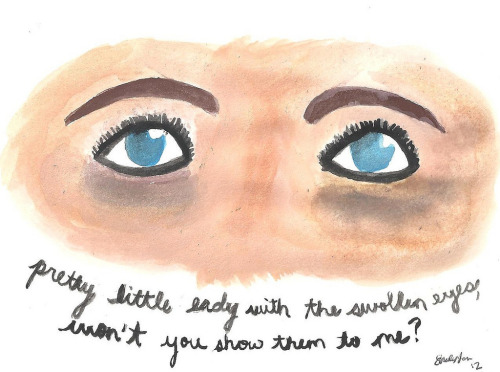 pretty little lady with the swollen eyes,
won't you show them to me?
'12